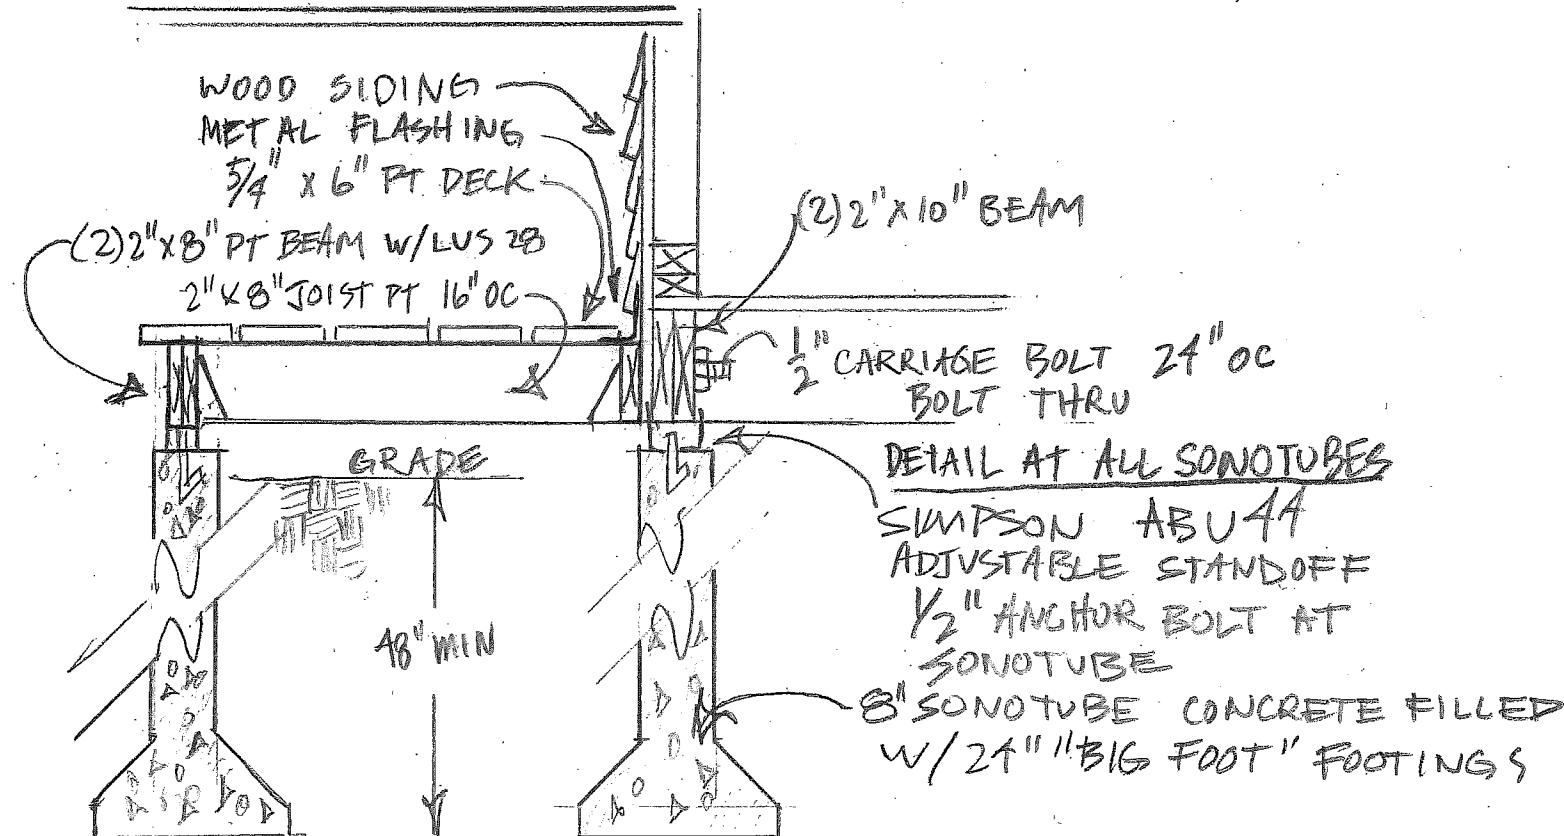 WOOD SIDING
METAL FLASHING
5/4" X 6" PT DECK
(2) 2" X 8" PT BEAM W/LUS 28
2" X 8" JOIST PT 16" OC
(2) 2" X 10" BEAM
1/2" CARRIAGE BOLT 24" OC
BOLT THRU
GRADE
48" MIN
DETAIL AT ALL SONOTUBES
SIMPSON ABU 44
ADJUSTABLE STANDOFF
1/2" ANCHOR BOLT AT
SONOTUBE
8" SONOTUBE CONCRETE FILLED
W/ 24" "BIG FOOT" FOOTINGS